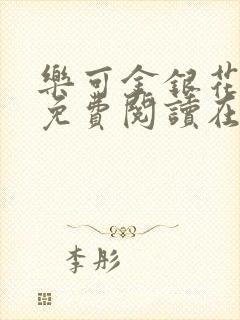 樂可金銀花
免費閱讀在
李彤